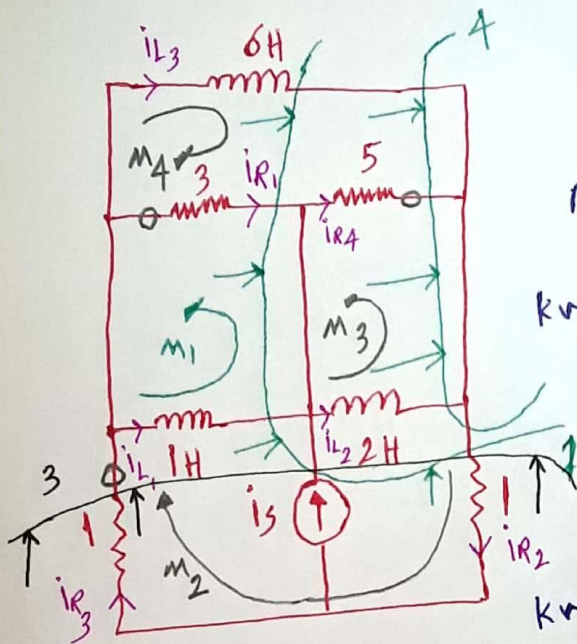 iL3 6H 4
M4 3 iR1 5
iR4
M1 M3
iL1 1H iL2 2H
3 1 is 1
iR3 M2 iR2